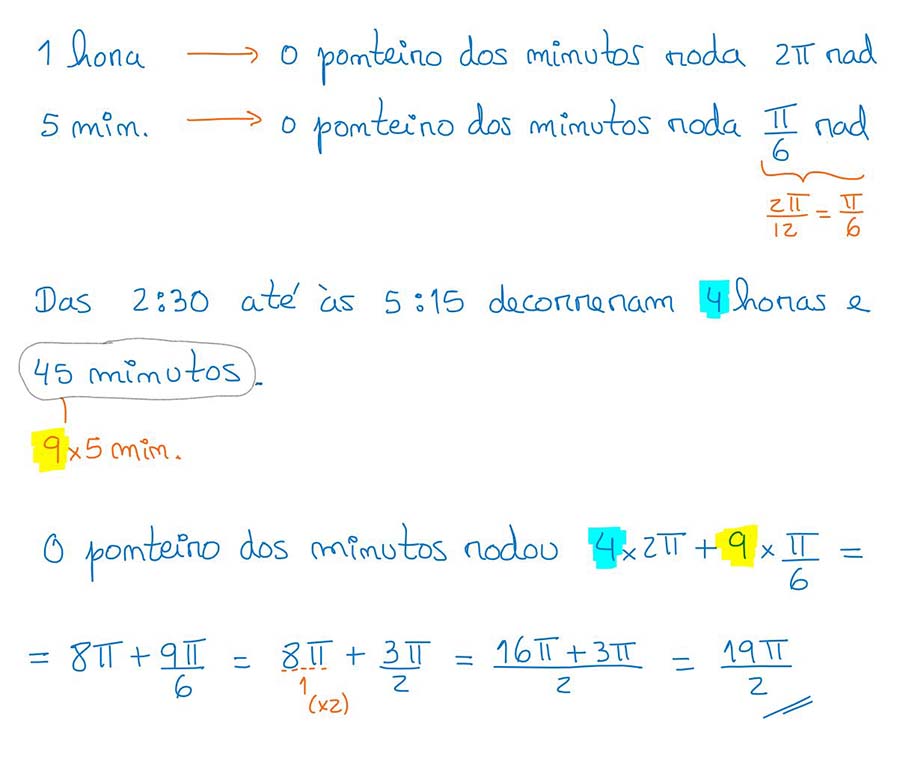 1 hora → o ponteiro dos minutos roda 2π rad
5 min. → o ponteiro dos minutos roda π/6 rad
2π/12 = π/6
Das 2:30 até às 5:15 decorreram 4 horas e
45 minutos.
9×5 min.
O ponteiro dos minutos rodou 4×2π + 9 × π/6 =
= 8π + 9π/6 = 8π/1 + 3π/2 = (16π + 3π)/2 = 19π/2
(×2)